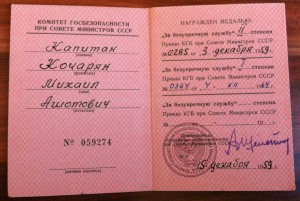 КОМИТЕТ ГОСБЕЗОПАСНОСТИ
ПРИ СОВЕТЕ МИНИСТРОВ СССР
Капитан
Кочарян
Михаил
Ашотович
№ 059274
НАГРАЖДЕН МЕДАЛЬЮ
„За безупречную службу" II степени
Приказ КГБ при Совете Министров СССР
№ 0285 „ 3 декабря 1959 г.
„За безупречную службу" I степени
Приказ КГБ при Совете Министров СССР
„За безупречную службу" степени
Приказ КГБ при Совете Министров СССР
№
15 декабря 1959 г.